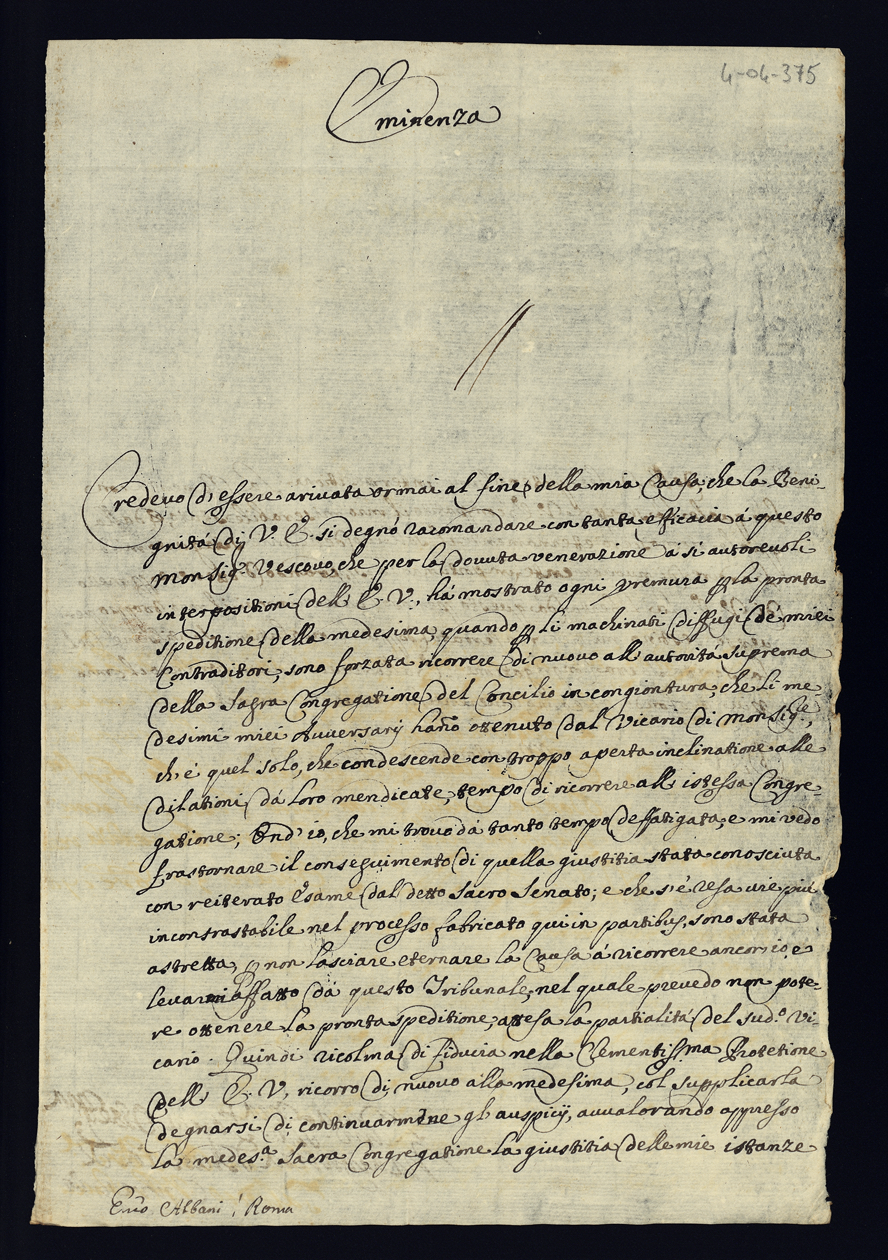 4-04-375
Eminenza
Credevo d'essere arivata ormai al fine della mia Causa, che la Beni-
gnitá di V. E. si degnó racomandare con tanta efficacia á questo
Monsig.r Vescovo, che per la dovuta venerazione á sí autorevoli
interpositioni dell' E. V., há mostrato ogni premura p la pronta
speditione della medesima, quando p li machinati diffugi dé miei
Contraditori, sono forzata ricorrere di nuovo all' autoritá suprema
della Sagra Congregatione del Concilio in congiontura, che li me
desimi miei Avversarij hano ottenuto dal Vicario di Monsig.re,
ch' é quel solo, che condescende con troppo aperta inclinatione alle
dilationi dá loro mendicate, tempo di ricorrere all' istessa Congre-
gatione; Ond' io, che mi trovo dá tanto tempo deffatigata, e mi vedo
frastornare il conseguimento di quella giustitia stata conosciuta
con reiterato esame dal detto Sacro Senato; e che s'é resa vie piú
incontrastabile nel processo fabricato qui in partibus, sono stata
astretta, p non lasciare eternare la Causa á ricorrere ancor' io, e
levarmi affatto dá questo Tribunale, nel quale prevedo non pote-
re ottenere la pronta speditione, attesa la partialitá del sud.o Vi-
cario. Quindi ricolma di fiducia nella Clementiss.ma Protetione
dell' E. V, ricorro di nuovo alla medesima, col supplicarla
degnarsi di continuarmene gl' auspicij, avvalorando appresso
la medes.a Sacra Congregatione la giustitia delle mie istanze
Emo Albani / Roma